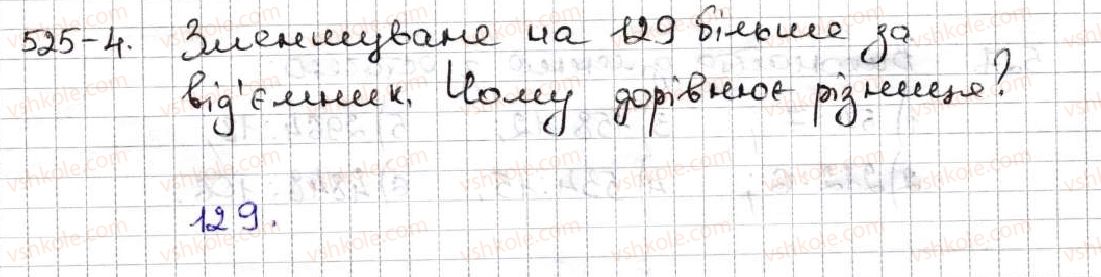 525-4. Зменшуване на 129 більше за
від'ємник. Чому дорівнює різниця?
129.